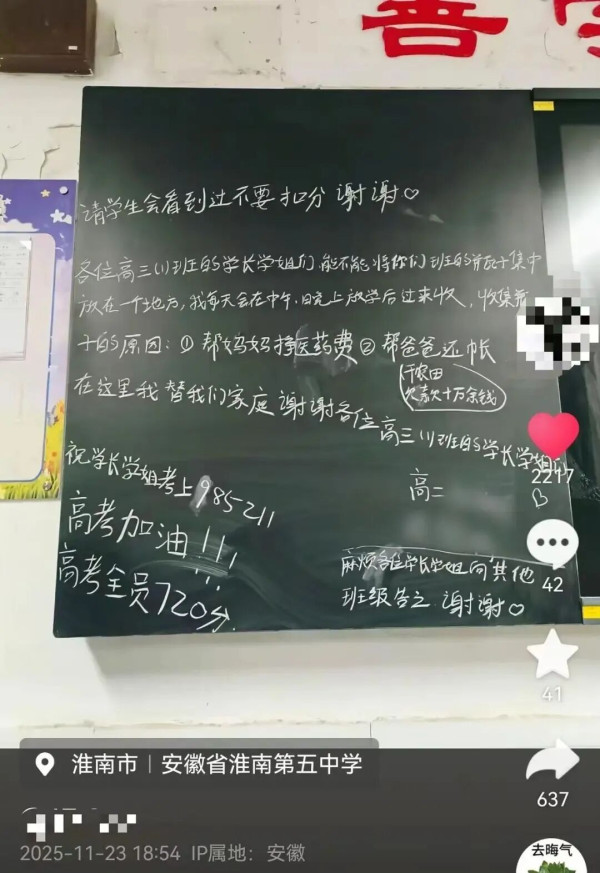 善
请学生会看到过不要扣分 谢谢♡
各位高三(1)班的学长学姐们,能不能将你们班的并瓦十集中
放在一个地方,我每天会在中午、日完上放学后过来收,收集瓶
十的原因:① 帮妈妈挣医药费② 帮爸爸还帐
欠农田
欠款十万余钱
在这里我替我们家庭谢谢各位高三(1)班的学长学姐们
高二
♡
祝学长学姐考上985211
高考加油!!!
高考全员720分.
麻烦各位学长学姐向其他
班级告之 谢谢♡
2217
42
41
637
淮南市 | 安徽省淮南第五中学
2025-11-23 18:54 IP属地:安徽
去晦气